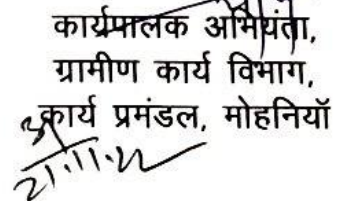 कार्यपालक अभियंता,
ग्रामीण कार्य विभाग,
कार्य प्रमंडल, मोहनियॉ
21.11.22